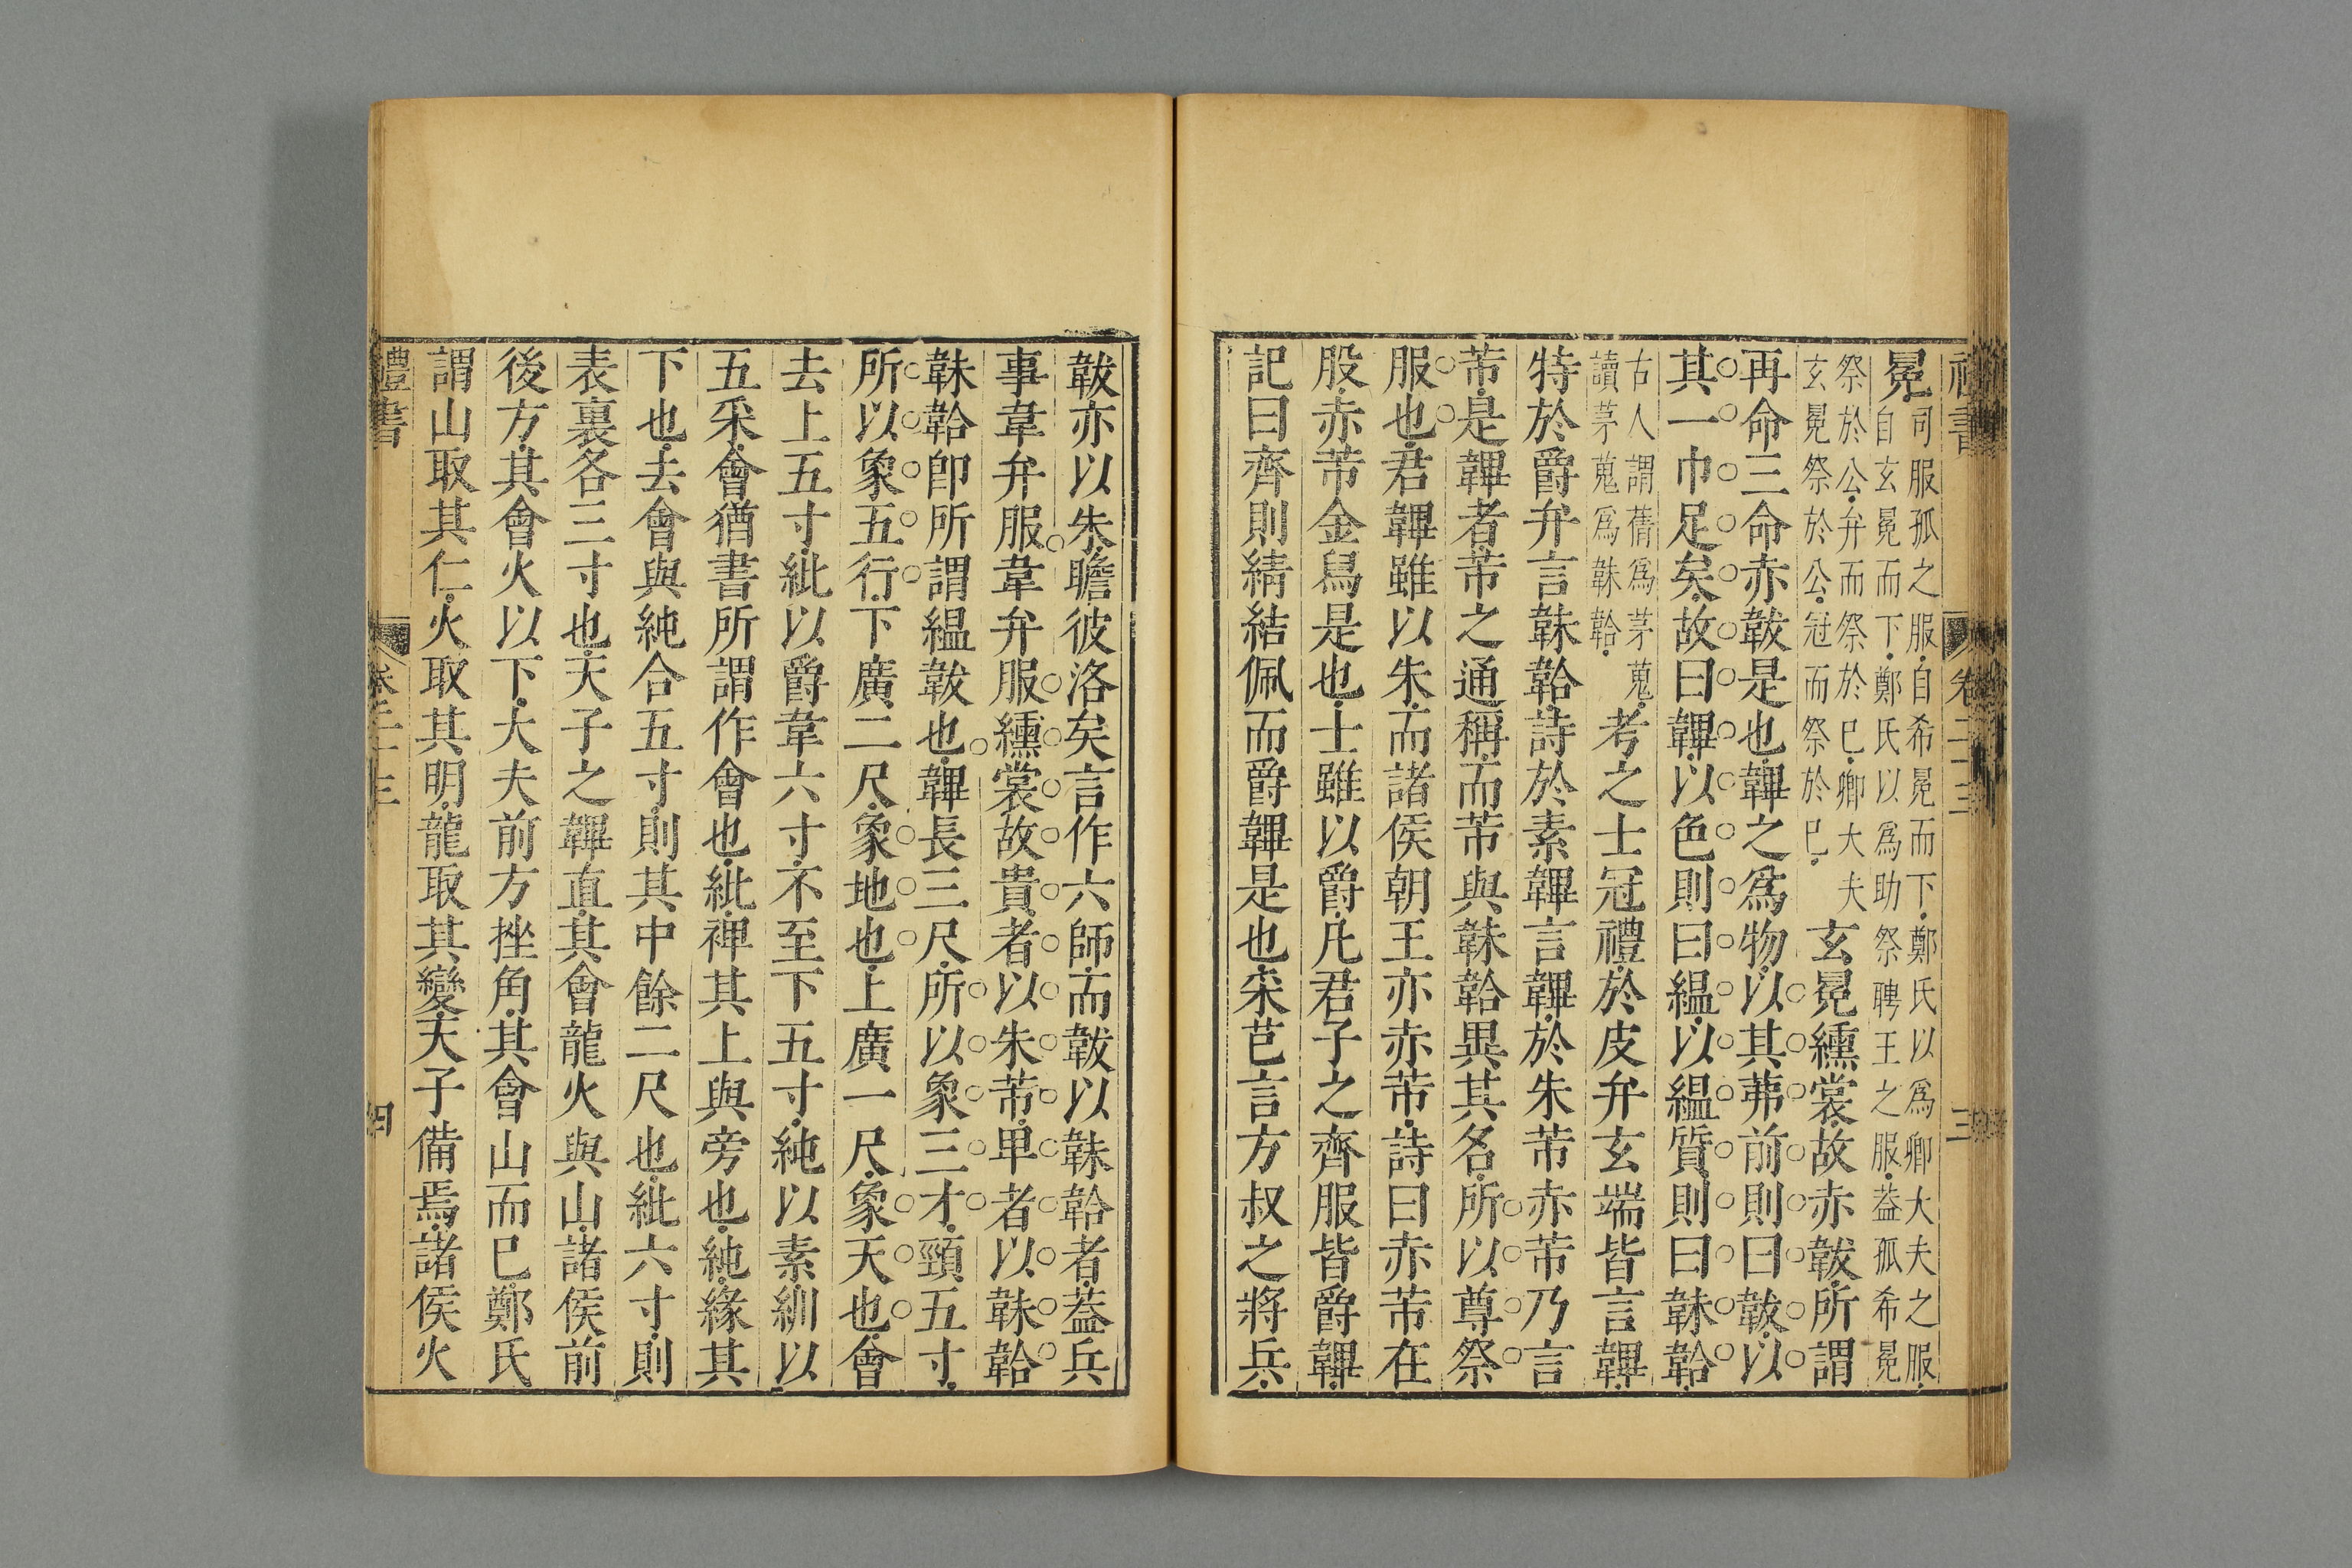 禮書
卷二十三
三
冕司服孤之服自希冕而下鄭氏以爲卿大夫之服
自玄冕而下鄭氏以爲助祭聘王之服葢孤希冕
祭於公弁而祭於巳卿大夫
玄冕祭於公冠而祭於巳玄冕纁裳故赤韍所謂
再命三命赤韍是也韠之爲物以其茀前則曰韍以
其一巾足矣故曰韠以色則曰縕以縕質則曰韎韐
古人謂蒨爲茅蒐
讀茅蒐爲韎韐考之士冠禮於皮弁玄端皆言韠
特於爵弁言韎韐詩於素韠言韠於朱芾赤芾乃言
芾是韠者芾之通稱而芾與韎韐異其名所以尊祭
服也君韠雖以朱而諸侯朝王亦赤芾詩曰赤芾在
股赤芾金舄是也士雖以爵凡君子之齊服皆爵韠
記曰齊則綪結佩而爵韠是也采芑言方叔之將兵
韍亦以朱瞻彼洛矣言作六師而韍以韎韐者葢兵
事韋弁服韋弁服纁裳故貴者以朱芾卑者以韎韐
韎韐卽所謂縕韍也韠長三尺所以象三才頸五寸
所以象五行下廣二尺象地也上廣一尺象天也會
去上五寸紕以爵韋六寸不至下五寸純以素紃以
五采會猶書所謂作會也紕裨其上與旁也純緣其
下也去會與純合五寸則其中餘二尺也紕六寸則
表裏各三寸也天子之韠直其會龍火與山諸侯前
後方其會火以下大夫前方挫角其會山而巳鄭氏
謂山取其仁火取其明龍取其變天子備焉諸侯火
禮書
卷二十三
四